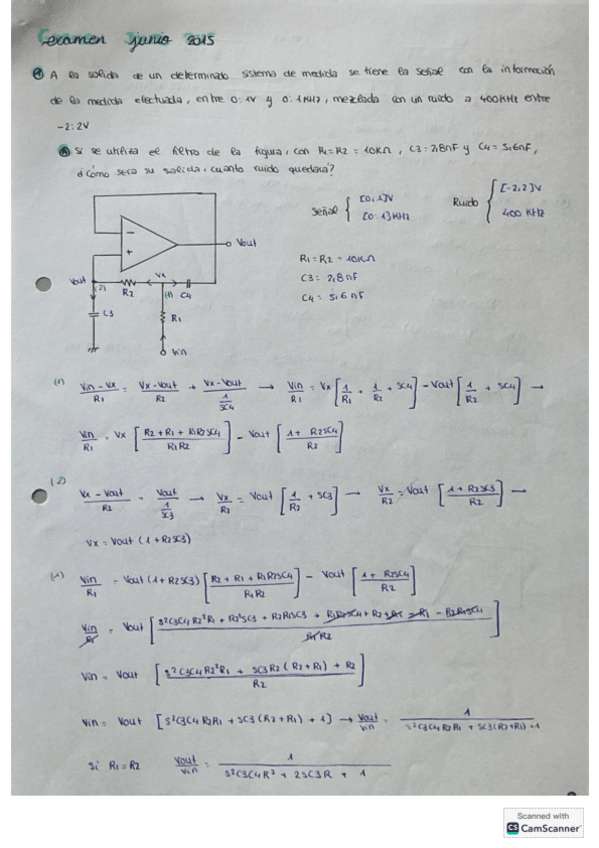 Examen Junio 2015
A la salida de un determinado sistema de medida se tiene la señal con la información
de la medida efectuada, entre 0:1V y 0:1KHz, mezclada con un ruido a 400KHz entre
-2:2V
Si se utiliza el filtro de la figura, con R1=R2 = 10KΩ, C3=2,8nF y C4 = 5,6nF,
¿Cómo será su salida, cuanto ruido quedará?
Señal { [0,1]V [0:1]KHz
Ruido { [-2,2]V 400 KHz
Vout
R1=R2 = 10KΩ
C3 = 2,8nF
C4 = 5,6nF
Vout (2) R2 Vx (1) C4
C3 R1
Vin
(1) (Vin - Vx)/R1 = (Vx - Vout)/R2 + (Vx - Vout)/(1/SC4) → Vin/R1 = Vx [1/R1 + 1/R2 + SC4] - Vout [1/R2 + SC4] →
Vin/R1 = Vx [(R2 + R1 + R1R2SC4)/(R1R2)] - Vout [(1 + R2SC4)/R2]
(2) (Vx - Vout)/R2 = Vout/(1/SC3) → Vx/R2 = Vout [1/R2 + SC3] → Vx/R2 = Vout [(1 + R2SC3)/R2] →
Vx = Vout (1 + R2SC3)
(1) Vin/R1 = Vout (1 + R2SC3) [(R2 + R1 + R1R2SC4)/(R1R2)] - Vout [(1 + R2SC4)/R2]
Vin = Vout [(S²C3C4R2²R1 + SC3R2(R2+R1) + R2)/R2]
Vin = Vout [S²C3C4R2R1 + SC3(R2+R1) + 1] → Vout/Vin = 1/(S²C3C4R2R1 + SC3(R2+R1) + 1)
Si R1=R2 Vout/Vin = 1/(S²C3C4R² + 2SC3R + 1)
Scanned with
CS CamScanner